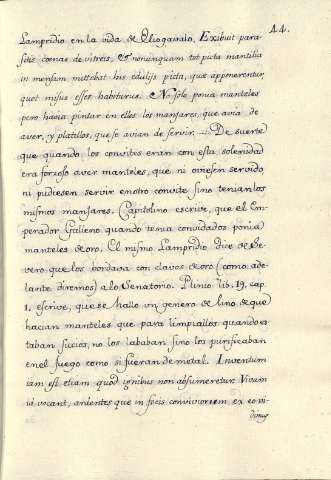 44.
Lampridio en la vida de Eliogavalo. Exibuit para-
sitis coenas de vitreis, et nonnunquam tot picta mantilia
in mensam mittebat his edulijs picta, quae apponerentur,
quot misus esset habiturus. No solo ponia manteles
pero hacia pintar en ellos los manjares, que avia de
aver, y platillos, que se avian de servir. De suerte
que quando los convites eran con esta solenidad
era forzoso aver manteles, que ni oviesen servido,
ni pudiesen servir en otro convite sino tenian los
mismos manjares. Capitolino escrive, que el Em-
perador Galieno quando tenia convidados ponia
manteles de oro. El mismo Lampridio dice de Se-
vero que los bordava con clavos de oro (como ade-
lante diremos) a lo Senatorio. Plinio lib. 19. cap.
1. escrive, que se hallo un genero de lino de que
hacian manteles que para limpiallos quando es-
taban sucios, no los lababan sino los purificaban
en el fuego como si fueran de metal. Inventum
iam est etiam quod ignibus non absumeretur. Vivum
id vocant, ardentes que in focis conviviorum ex eo vi-
dimus